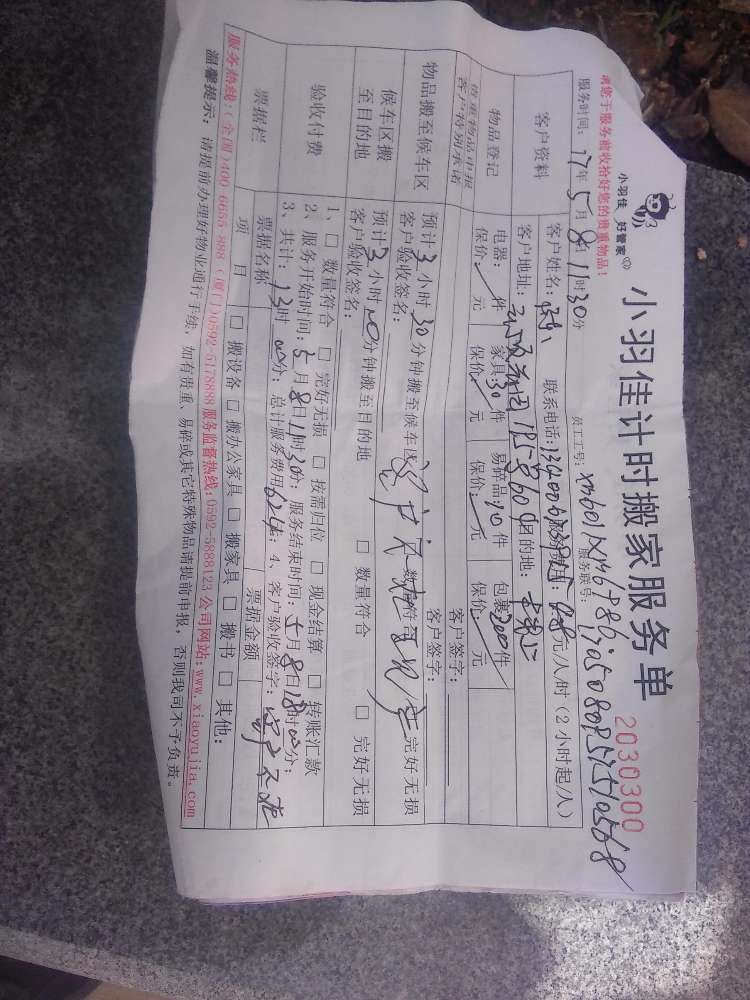 小羽佳 好管家
小羽佳计时搬家服务单
2030300
请您于服务前收拾好您的贵重物品！
员工工号：
服务联号：
服务时间：17年5月8日11时30分
客户资料
客户姓名： 联系电话： 元/小时（2小时起/人）
客户地址： 目的地：
物品登记
电器：/件 家具30件 易碎品：10件 包裹200件
保价：/元 保价：/元 保价：/元 保价：/元
贵重物品申报
客户特别承诺
客户签字：
客户签字：
物品搬至候车区
预计3小时30分钟搬至候车区 数量符合 完好无损
客户验收签名：
候车区搬
至目的地
预计3小时00分钟搬至目的地 □ 数量符合 □ 完好无损
客户验收签名：
验收付费
1、□ 数量符合 □ 完好无损 □ 按需归位 □ 现金结算 □ 转账汇款
2、服务开始时间：5月8日11时30分；服务结束时间：5月8日18时00分；
3、共计：13时00分；总计服务费用624；4、客户验收签字：
票据栏
票据名称 票据金额
项目 □ 搬设备 □ 搬办公家具 □ 搬家具 □ 搬书 □ 其他：
服务热线：(全国)400-6655-888 (厦门)0592-5178888 服务监督热线：0592-5888123 公司网站：www.xiaoyujia.com
温馨提示：请提前办理好物业通行手续，如有贵重、易碎或其它特殊物品请提前申报，否则我司不予负责。